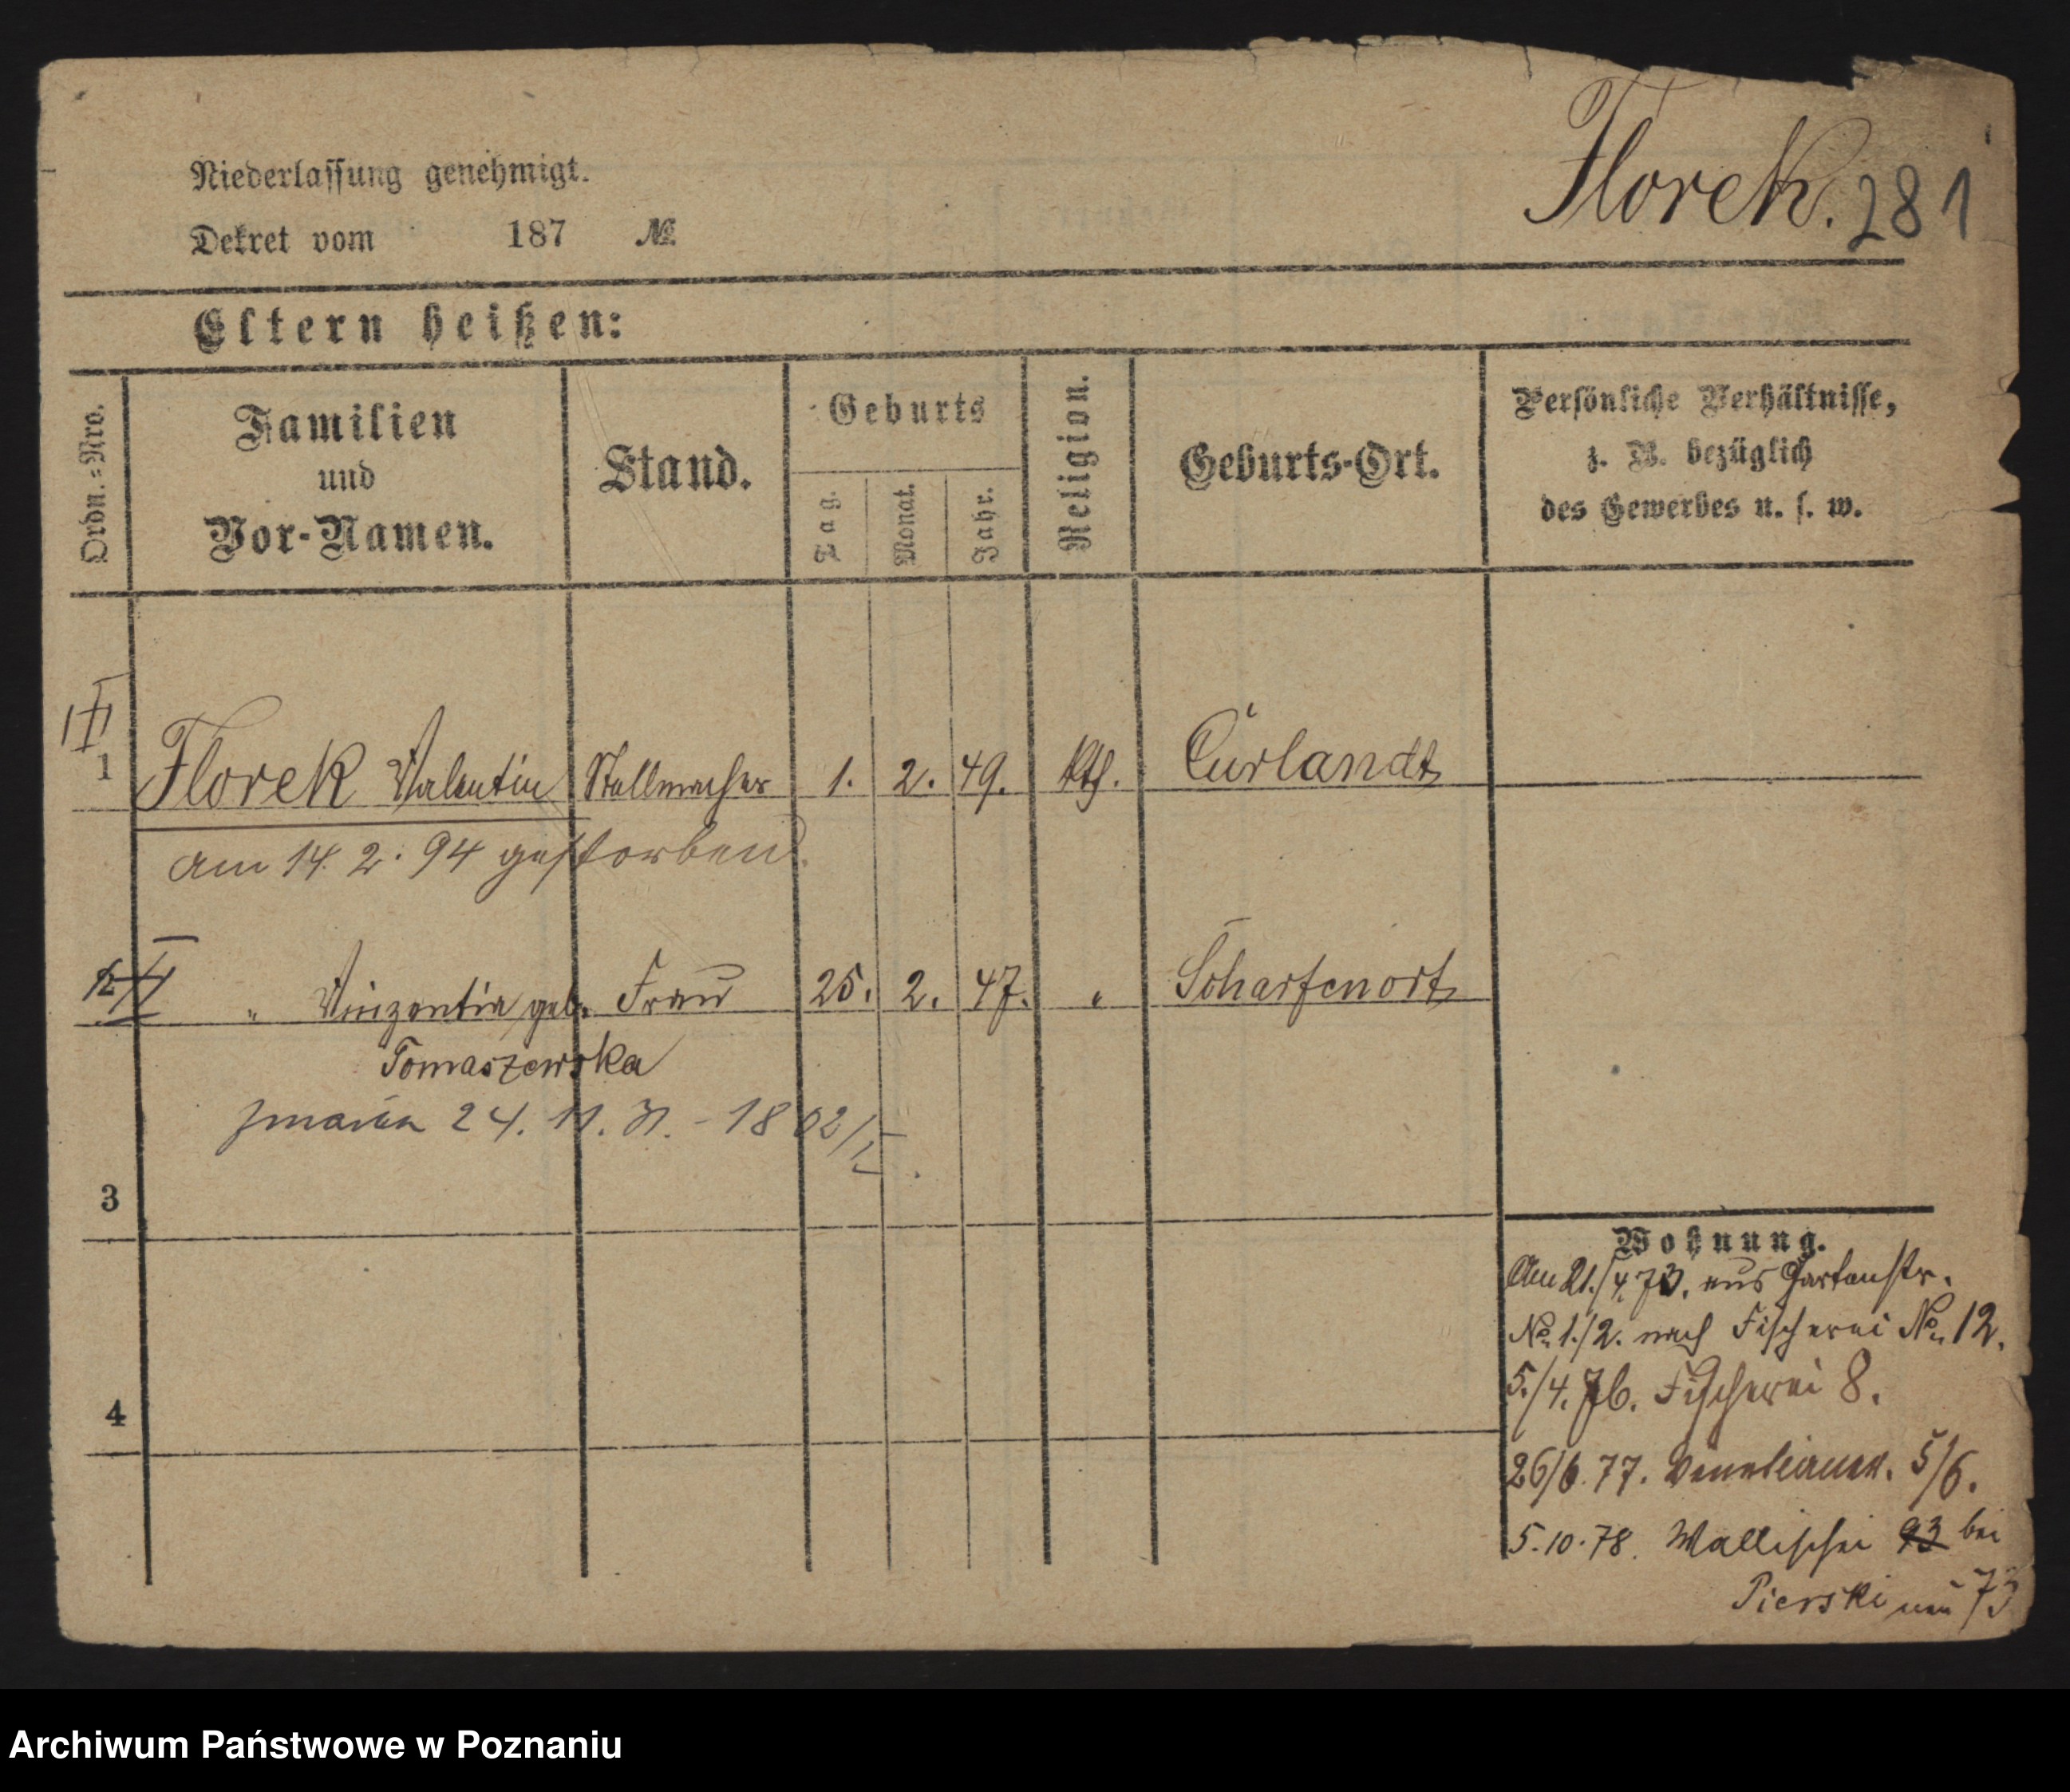 Niederlassung genehmigt.
Dekret vom 187 №
Florek. 281
Eltern heißen:
Ordn.=Nro.
Familien
und
Vor-Namen.
Stand.
Geburts
Tag.
Monat.
Jahr.
Religion.
Geburts-Ort.
Persönliche Verhältnisse,
z. B. bezüglich
des Gewerbes u. s. w.
1 Florek Valentin Stellmacher 1. 2. 49. kth.
am 14. 2. 94 gestorben.
" Vinzentia geb. Frau 25. 2. 47. " Scharfenort
Tomaszewska
24. 11. 31. - 1802/I.
3
4
Wohnung.
Am 21./4.73. aus Gartenstr.
No. 1./2. nach Fischerei No. 12.
5./4. 76. Fischerei 8.
26/6. 77. 5/6.
5.10.78. Wallischei 93 bei
Pierski 73
Archiwum Państwowe w Poznaniu